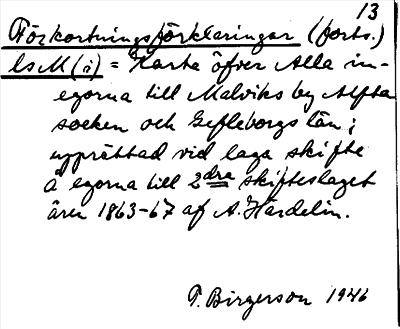 13
Förkortningsförklaringar (forts.)
lsM(å) = Karta öfver Alla in-
egorna till Malviks by Alfta
socken och Gefleborgs län;
upprättad vid laga skifte
å egorna till 2dra skifteslaget
åren 1863-67 af A. Härdelin.
T. Birgerson 1946